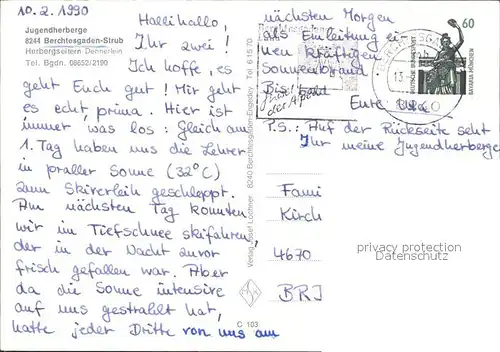 10.2.1990
Jugendherberge
8244 Berchtesgaden-Strub
Herbergseltern Dennerlein
Tel. Bgdn. 08652/2190
Hallihallo,
Ihr zwei!
Ich hoffe, es
geht Euch gut! Mir geht
es echt prima. Hier ist
immer was los: Gleich am
1. Tag haben uns die Lehrer
in praller Sonne (32°C)
zum Skiverleih geschleppt.
Am nächsten Tag konnten
wir im Tiefschnee skifahren,
der in der Nacht zuvor
frisch gefallen war. Aber
da die Sonne intensive
auf uns gestrahlt hat,
hatte jeder Dritte von uns am
nächsten Morgen
als Einleitung ei-
nen kräftigen
Sonnenbrand.
Bis bald
Eure
P.S.: Auf der Rückseite seht
Ihr meine Jugendherberge
Verlag Josef Lochner 8240 Berchtesgaden-Engedey Tel 61570
C 103
60
DEUTSCHE BUNDESPOST
BAVARIA MÜNCHEN
13.
der Alpen
Fami
Kirch
4670
BRI
privacy protection
Datenschutz